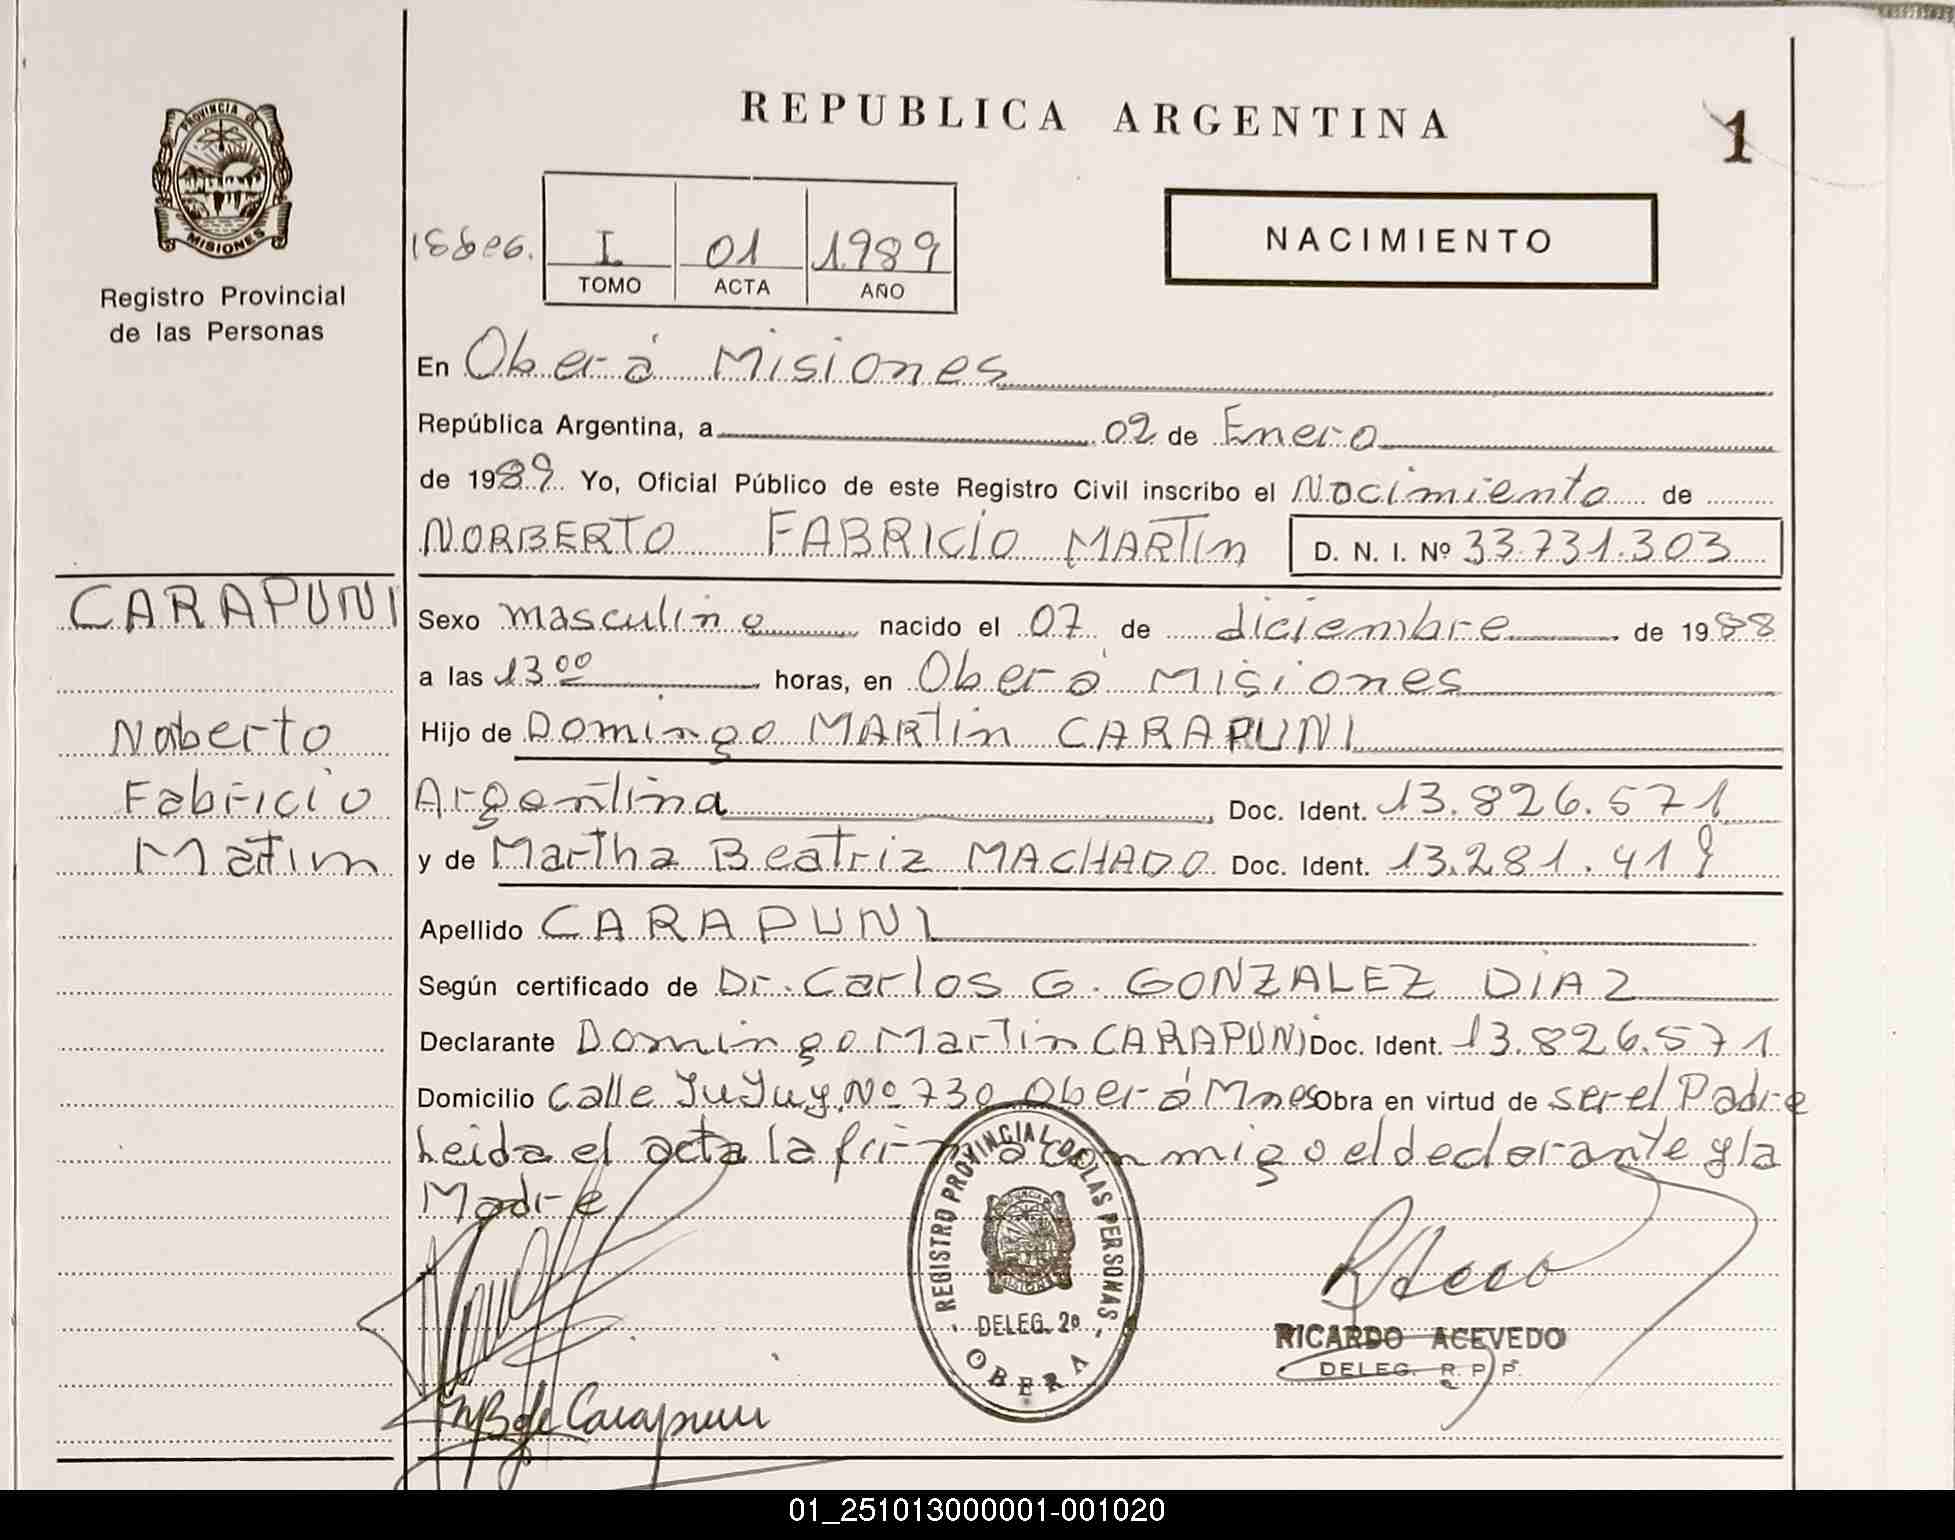 PROVINCIA DE
MISIONES
Registro Provincial
de las Personas
REPUBLICA ARGENTINA
1
I 01 1989
TOMO ACTA AÑO
NACIMIENTO
En Oberá Misiones
República Argentina, a 02 de Enero
de 1989 Yo, Oficial Público de este Registro Civil inscribo el Nacimiento de
NORBERTO FABRICIO MARTIN D. N. I. Nº 33.731.303
CARAPUNI
Noberto
Fabricio
Matim
Sexo masculino nacido el 07 de diciembre de 1988
a las 13 00 horas, en Oberá Misiones
Hijo de Domingo MARTIN CARAPUNI
Argentina Doc. Ident. 13.826.571
y de Martha Beatriz MACHADO Doc. Ident. 13.281.419
Apellido CARAPUNI
Según certificado de Dr. Carlos G. GONZALEZ DIAZ
Declarante Domingo Martin CARAPUNI Doc. Ident. 13.826.571
Domicilio Calle JuJuy Nº 730 Oberá Mnes Obra en virtud de ser el Padre
Leida el acta la firma conmigo el declarante y la
Madre
REGISTRO PROVINCIAL DE LAS PERSONAS
DELEG. 2º
OBERA
RICARDO ACEVEDO
DELEG. R. P. P.
Carapuni
01_251013000001-001020